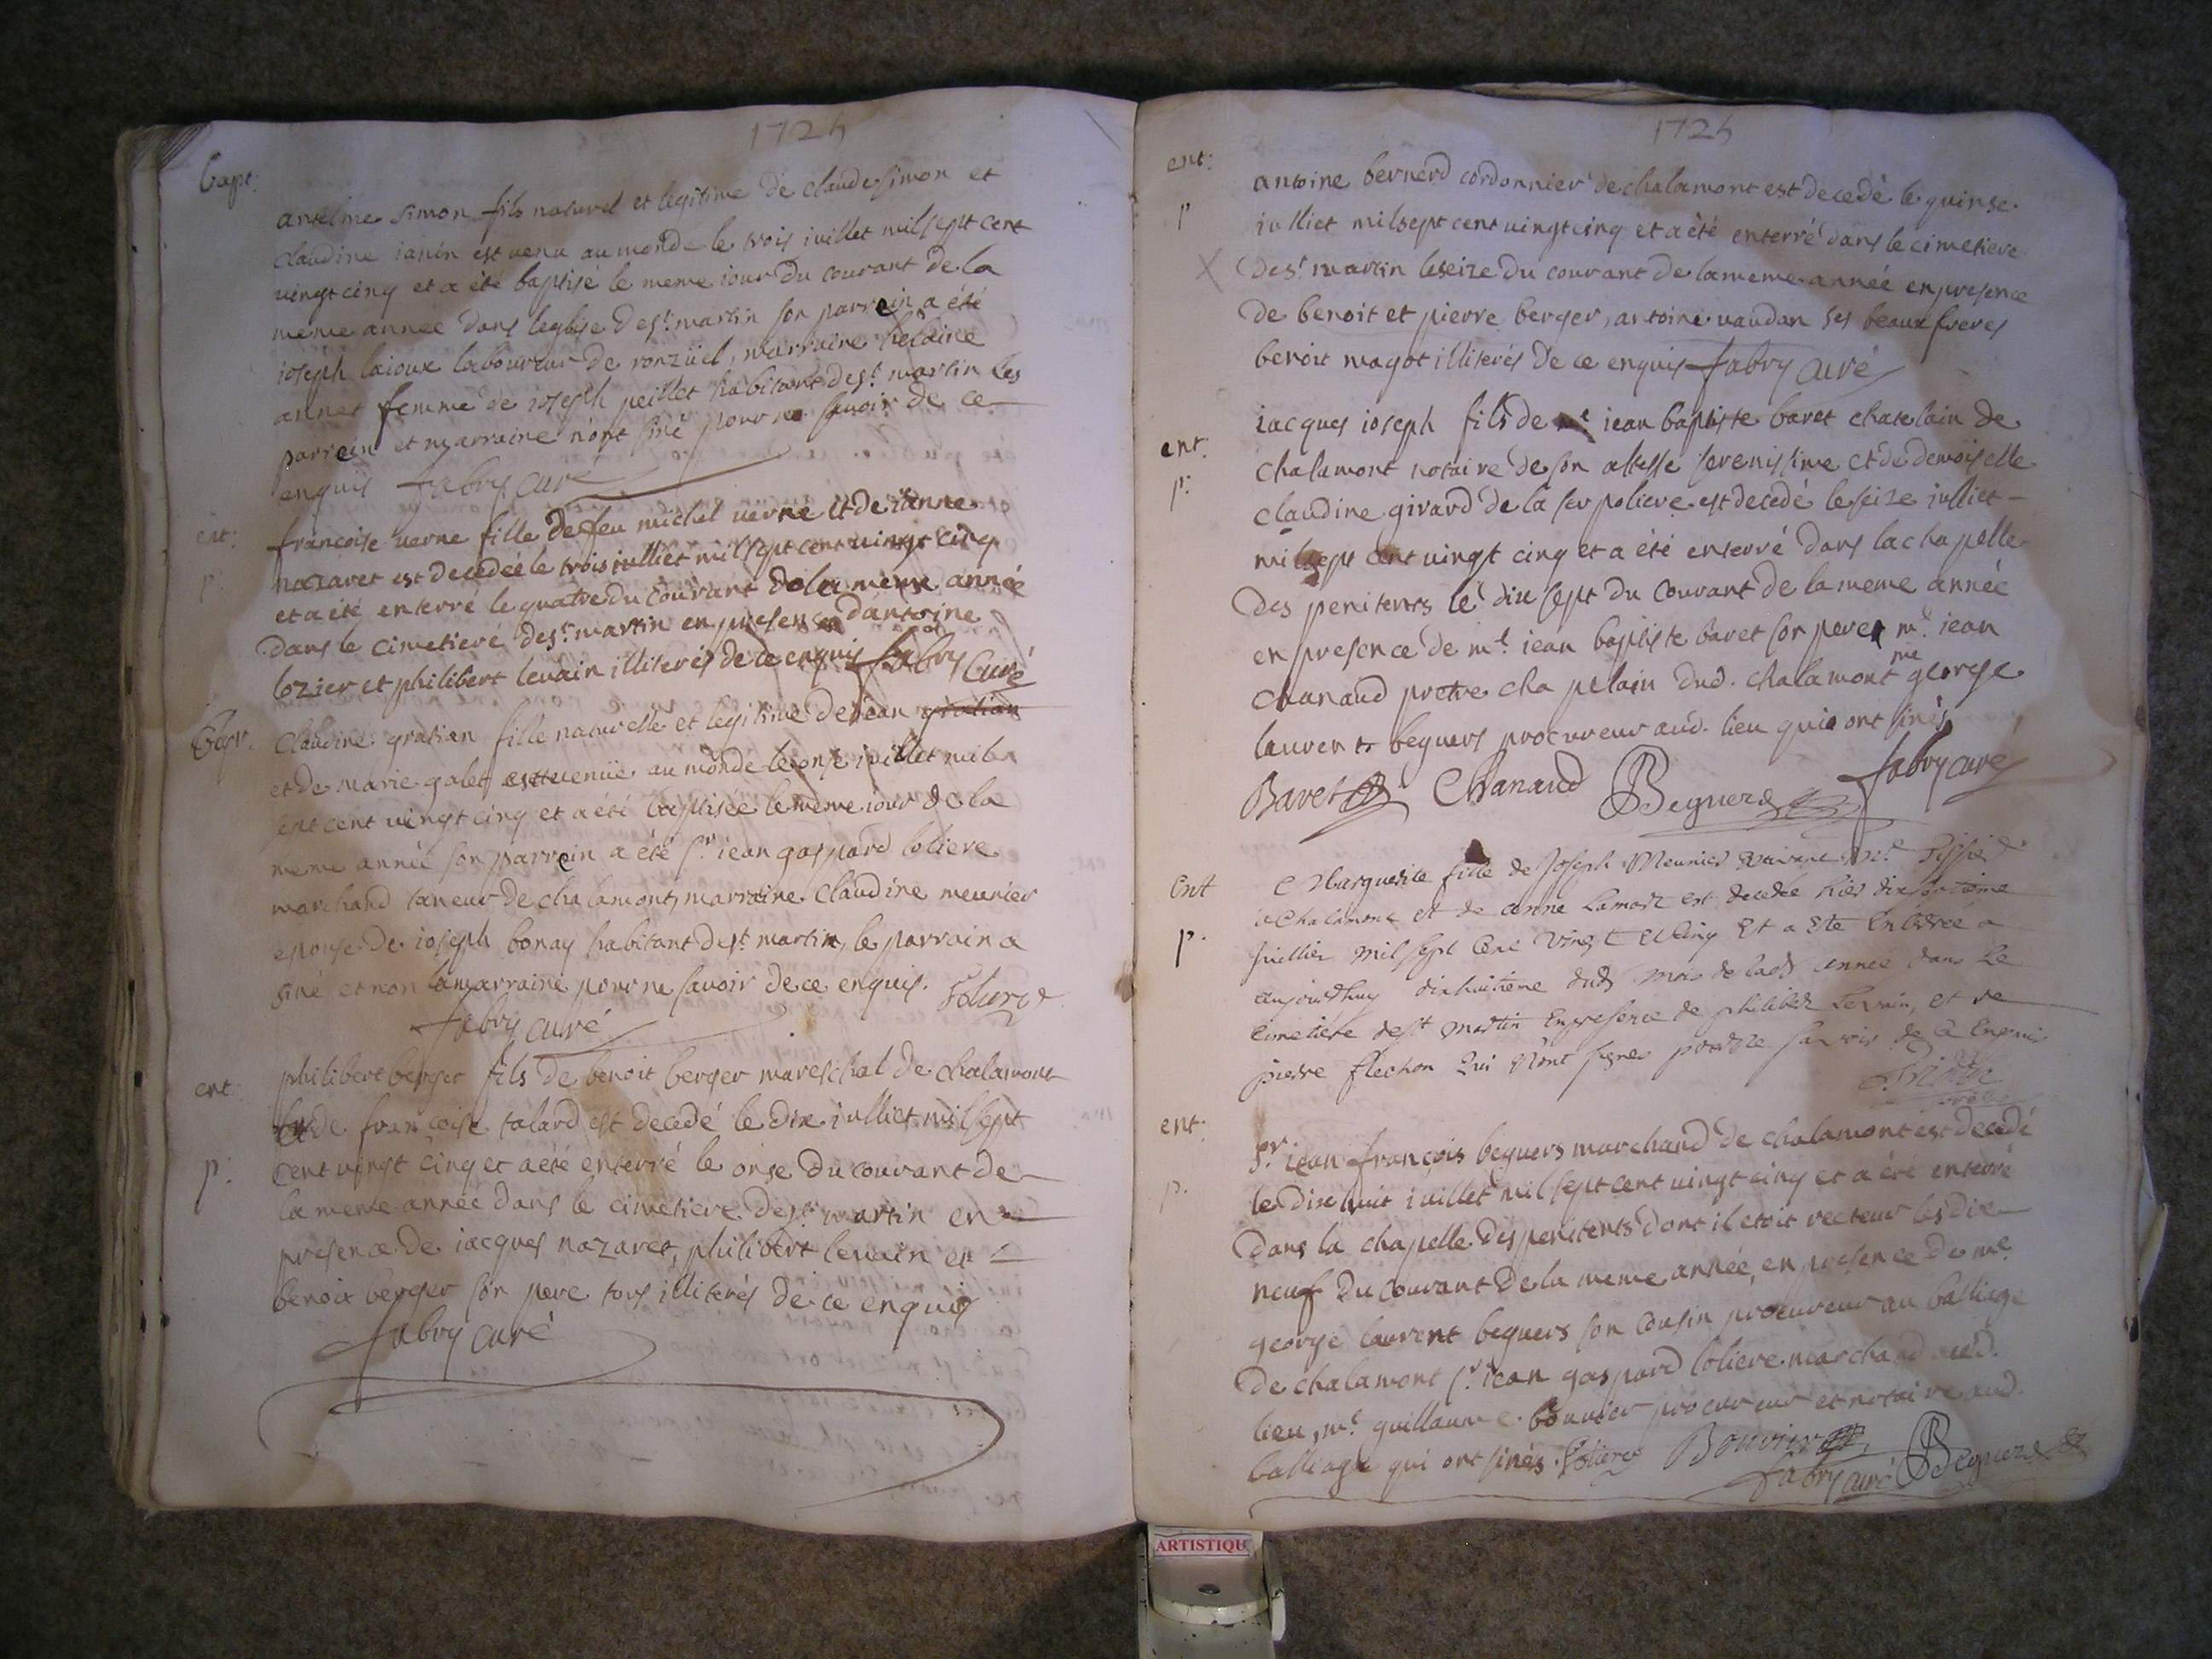 1725
bapt:
anselme simon fils naturel et legitime de claude simon et
claudine ianin est venu au monde le trois iuillet mil sept cent
vingt cinq et a été baptisé le meme iour du courant de la
meme année dans leglise de st martin son parrein a été
ioseph laioux laboureur de ronzüel, marraine helaine
annet femme de ioseph peillet habitant de st martin les
parrein et marraine n'ont siné pour ne savoir de ce
enquis fabry curé
ent:
p.
francoise verne fille de feu michel verne et de ianne
nazaret est decedée le trois iulliet mil sept cent vingt cinq
et a été enterré le quatre du courant de la meme année
dans le cimetiere de st martin en presence dantoine
lozier et philibert levain illiterés de ce enquis fabry curé
bapt.
claudine gratian fille naturelle et legitime de iean gratian
et de marie galet est venüe au monde le onse iuillet mil
sept cent vingt cinq et a été baptisée le meme iour de la
meme année son parrein a été sr. iean gaspard loliere
marchand taneur de chalamont, marraine claudine meunier
epouse de ioseph bonay habitant de st martin, le parrain a
siné et non la marraine pour ne savoir de ce enquis.
fabry curé
ent:
p.
philibert berger fils de benoit berger mareschal de chalamont
et de francoise talard est decedé le dix iulliet mil sept
cent vingt cinq et a été enterré le onse du courant de
la meme année dans le cimetiere de st martin en
presence de iacques nazaret, philibert levain et
benoit berger son pere tous illiterés de ce enquis
fabry curé
1725
ent:
p
X
antoine bernerd cordonnier de chalamont est decedé le quinse
iulliet mil sept cent vingt cinq et a été enterré dans le cimetiere
de st martin le seize du courant de la meme année en presence
de benoit et pierre berger, antoine vaudan ses beaux freres
benoit magot illiterés de ce enquis fabry curé
ent:
p:
iacques ioseph fils de me iean baptiste baret chatelain de
chalamont notaire de son altesse serenissime et de demoiselle
claudine girard de la serpoliere est decedé le seize iulliet
mil sept cent vingt cinq et a été enterré dans la chapelle
des penitents le dix sept du courant de la meme année
en presence de me. iean baptiste baret son pere me. iean
chanaud pretre chapelain dud. chalamont me george
laurent beguers procureur aud. lieu qui ont sinés
Baret Chanaud Beguers fabry curé
Ent
p.
Marguerite fille de Joseph Meunier
a Chalamont et de anne Lamare est decedée hier dixseptième
Juillier mil sept Cent vingt et Cinq Et a Ete Enterrée a
aujourdhuy dixhuitieme dud mois de lad année dans Le
Cimetiére de st martin En presence de philibert Levain, et de
pierre flechon qui n'ont signer pour ne sa voir de Ce Enquis
ent:
p.
sr. iean francois beguers marchand de chalamont est decedé
le dix huit iuillet mil sept cent vingt cinq et a été enterré
dans la chapelle des penitents dont il etoit recteur les dix
neuf du courant de la meme année, en presence de me
george laurent beguers son cousin procureur au balliage
de chalamont sr. iean gaspard loliere marchand aud.
lieu, me guillaume bouvier procureur et notaire aud.
balliage qui ont sinés. Loliere Bouvier
fabry curé Beguers
ARTISTIQU